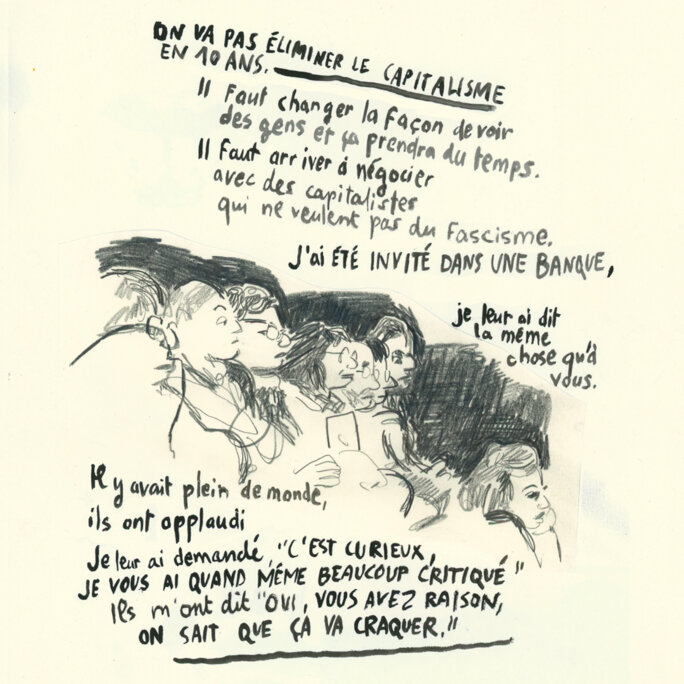 ON VA PAS ÉLIMINER LE CAPITALISME
EN 10 ANS.
Il Faut changer la Façon de voir
des gens et ça prendra du temps.
Il Faut arriver à négocier
avec des capitalistes
qui ne veulent pas du Fascisme.
J'ai ÉTÉ INVITÉ DANS UNE BANQUE,
je leur ai dit
la même
chose qu'à
vous.
Il y avait plein de monde,
ils ont applaudi
Je leur ai demandé, "C'EST CURIEUX,
JE VOUS AI QUAND MÊME BEAUCOUP CRITIQUÉ"
Ils m'ont dit "OUI, VOUS AVEZ RAISON,
ON SAIT QUE ÇA VA CRAQUER."